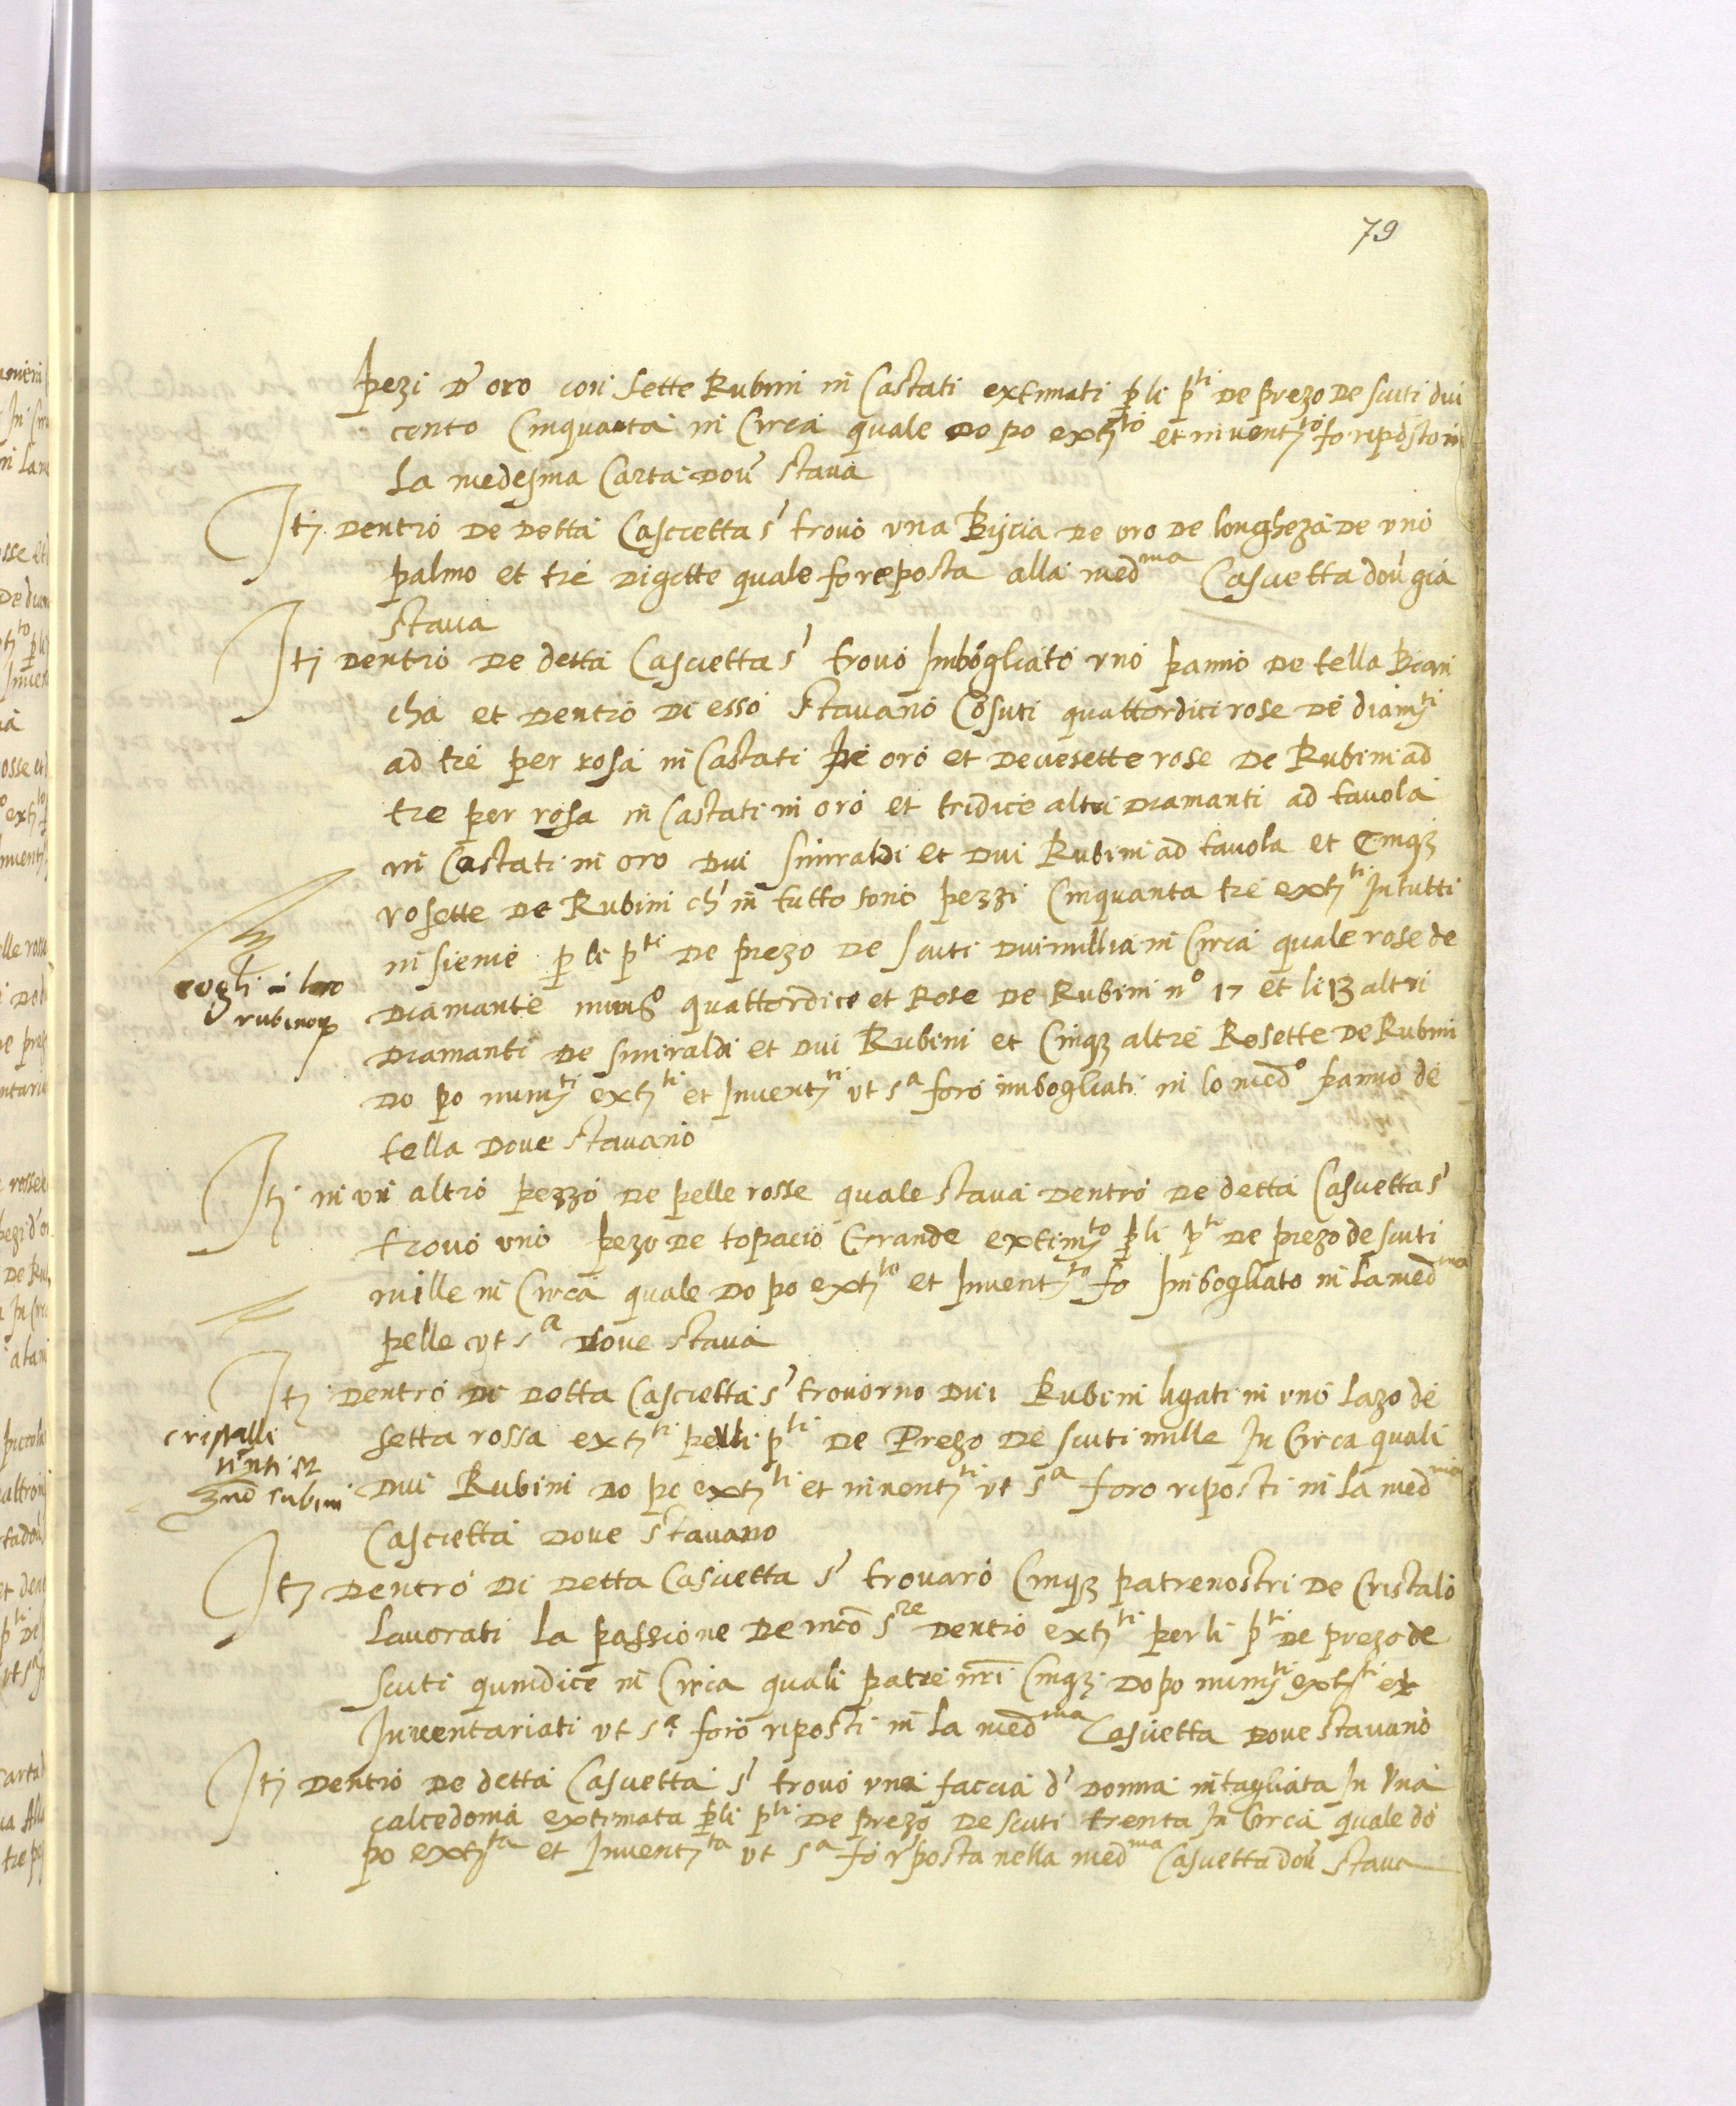 79
pezi d'oro con sette Rubini in Castati extimati p li p^ti de prezo de scuti dui
cento Cinquanta in Circa quale do po ext^to et invent^to fo riposto in
La medesma Carta dou' staua
It dentro de detta Cascietta s' trouò una Biscia de oro de longheza de uno
palmo et tre digette quale fo reposta alla med^ma Cascietta dou' già
staua
It dentro de detta Cascietta s' trouò Imbogliato uno panno de tella Bian
cha et dentro di esso stauano Cosuti quattordici rose de diam^ti
ad tre per rosa in Castati de oro et decesette rose de Rubini ad
tre per rosa in Castati in oro et tridice altri diamanti ad tauola
in Castati in oro dui smiraldi et dui Rubini ad tauola et Cinq3
rosette de Rubini ch' in tutto sono pezzi Cinquanta tre ext^ti In tutti
in sieme p li p^ti de prezo de scuti dui millia in Circa quale rose de
diamante num^o quattordice et Rose de Rubini n^o 17 et li 13 altri
diamanti de smiraldi et dui Rubini et Cinq3 altre Rosette de Rubini
do po num^ti ext^ti et Invent^ti ut s^a foro imbogliati in lo med^o panno de
tella doue stauano
rubino
It in un altro pezzo de pelle rosse quale staua dentro de detta Cascietta s'
trouò uno pezo de topacio Grande extim^to p li p^ti de prezo de scuti
mille in Circa quale do po ext^to et Invent^to fo Imbogliato in la med^ma
pelle ut s^a doue staua
It dentro di detta Cascietta s' trouorno dui Rubini ligati in uno lazo de
setta rossa ext^ti pelli p^ti de Prezo de scuti mille In Circa quali
dui Rubini do po ext^ti et invent^ti ut s^a foro riposti in la med^ma
Cascietta doue stauano
cristalli
tinti
rubini
It dentro di detta Cascietta s' trouaro Cinq3 patrenostri de Cristalo
Lauorati la passione de nro s^re dentro ext^ti per li p^ti de prezo de
scuti quindice in Circa quali patre nri Cinq3 dopo num^ti ext^ti et
Inventariati ut s^a foro riposti in la med^ma Cascietta doue stauano
It dentro de detta Cascietta s' trouò una faccia d' donna intagliata In Una
calcedonia extimata p li p^ti de prezo de scuti trenta In Circa quale do
po ext^ta et Invent^ta ut s^a fo rposta nella med^ma Cascietta dou' staua